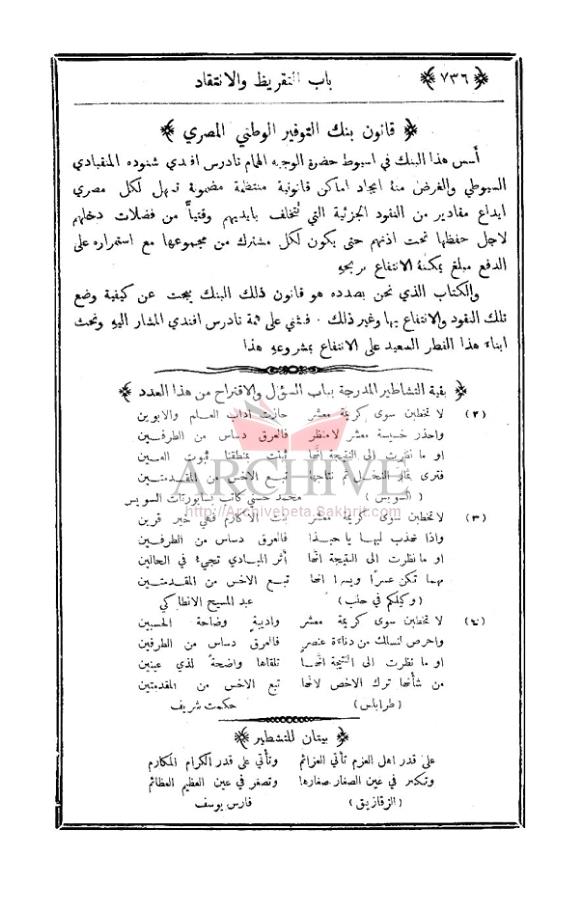 ﴿ ٧٣٦ ﴾ باب التقريظ والانتقاد
﴿ قانون بنك التوفير الوطني المصري ﴾
أسس هذا البنك في اسيوط حضرة الوجيه الهمام تادرس افندي شنوده المنقبادي
السيوطي والغرض منهُ ايجاد اماكن قانونية منتظمة مضمونة تسهل لكل مصري
ايداع مقادير من النقود الجزئية التي تتخلف بايديهم وقتياً من فضلات دخلهم
لاجل حفظها تحت اذنهم حتى يكون لكل مشترك من مجموعها مع استمراره على
الدفع مبلغ يمكنهُ الانتفاع بربحهِ
والكتاب الذي نحن بصدده هو قانون ذلك البنك يبحث عن كيفية وضع
تلك النقود والانتفاع بها وغير ذلك . فنثني على همة تادرس افندي المشار اليهِ ونحث
ابناء هذا القطر السعيد على الانتفاع بمشروعهِ هذا
﴿ بقية التشاطير المدرجة بباب السؤال والاقتراح من هذا العدد ﴾
(٢) لا تخطبن سوى كريمة معشر حازت آداب العلم والابوين
واحذر خسيسة معشر لا منظر فالعرق دساس من الطرفين
او ما نظرت الى النتيجة انها ثبتت بمنطقنا ثبوت العين
فترى ثمار النخل تم نتاجها تبع الاخس من المقدمتين
(السويس) محمد حسني كاتب بسابورتات السويس
(٣) لا تخطبن سوى كريمة معشر بنت الاكارم فهي خير قرين
واذا جذب ليها يا حبذا فالعرق دساس من الطرفين
او ما نظرت الى النتيجة انها أثر المبادي تجيء في الحالين
مهما تكن عسراً ويسراً انها تبع الاخس من المقدمتين
(وكيلكم في حلب) عبد المسيح الانطاكي
(٤) لا تخطبن سوى كريمة معشر وادبية وضاحة الحسبين
واحرص لنسلك من دناءة عنصر فالعرق دساس من الطرفين
او ما نظرت الى النتيجة انها تلقاها واضحة لذي عينين
من شأنها ترك الاخص لانها تبع الاخس من المقدمتين
(طرابلس) حكمت شريف
﴿ بيتان للتشطير ﴾
على قدر اهل العزم تأتي العزائم وتأتي على قدر الكرام المكارم
وتكبر في عين الصغار صغارها وتصغر في عين العظيم العظائم
(الزقازيق) فارس يوسف
ARCHIVE
http://Archivebeta.Sakhrit.com